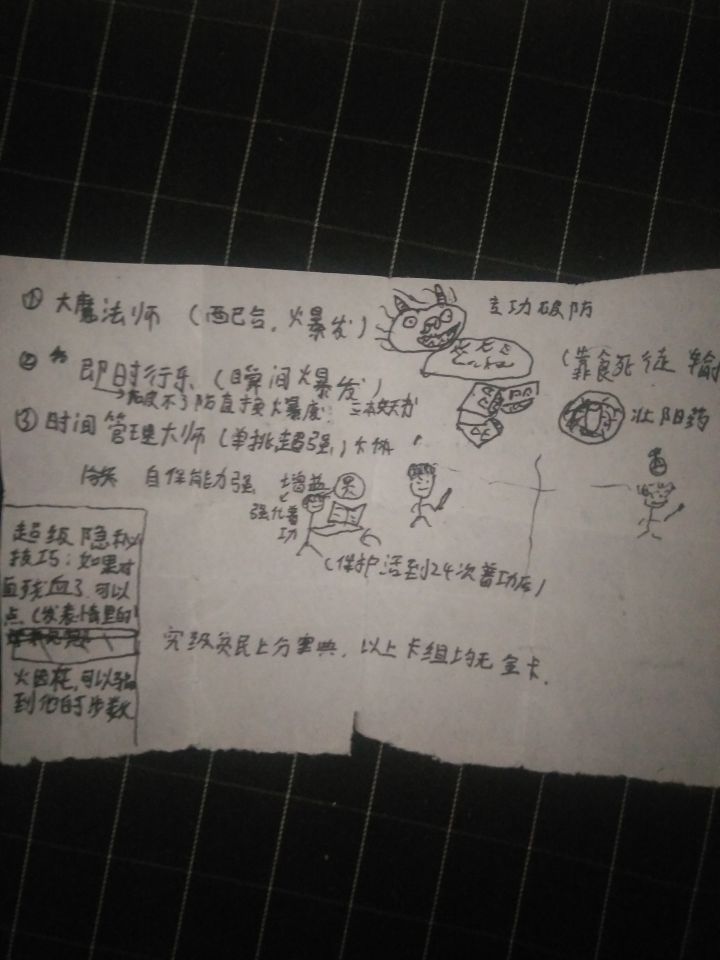 ① 大魔法师（西巴台，火暴发）
专功破防
② 即时行乐（瞬间火暴发）
破不了防直接火暴发
三本妖书
（靠食死徒输
壮阳药
③ 时间管理大师（单挑超强）
自保能力强
增益
强化普功
（保护活到24次普功后）
超级隐秘
技巧：如果对
面残血了，可以
点（发表情里的
火图标，可以骗
到他的步数
究级贫民上分宝典，以上卡组均无金卡．